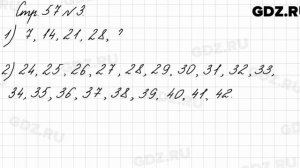 GDZ.RU
Стр. 57 №3
1) 7, 14, 21, 28, ?
2) 24, 25, 26, 27, 28, 29, 30, 31, 32, 33,
34, 35, 36, 37, 38, 39, 40, 41, 42
GDZ.RU